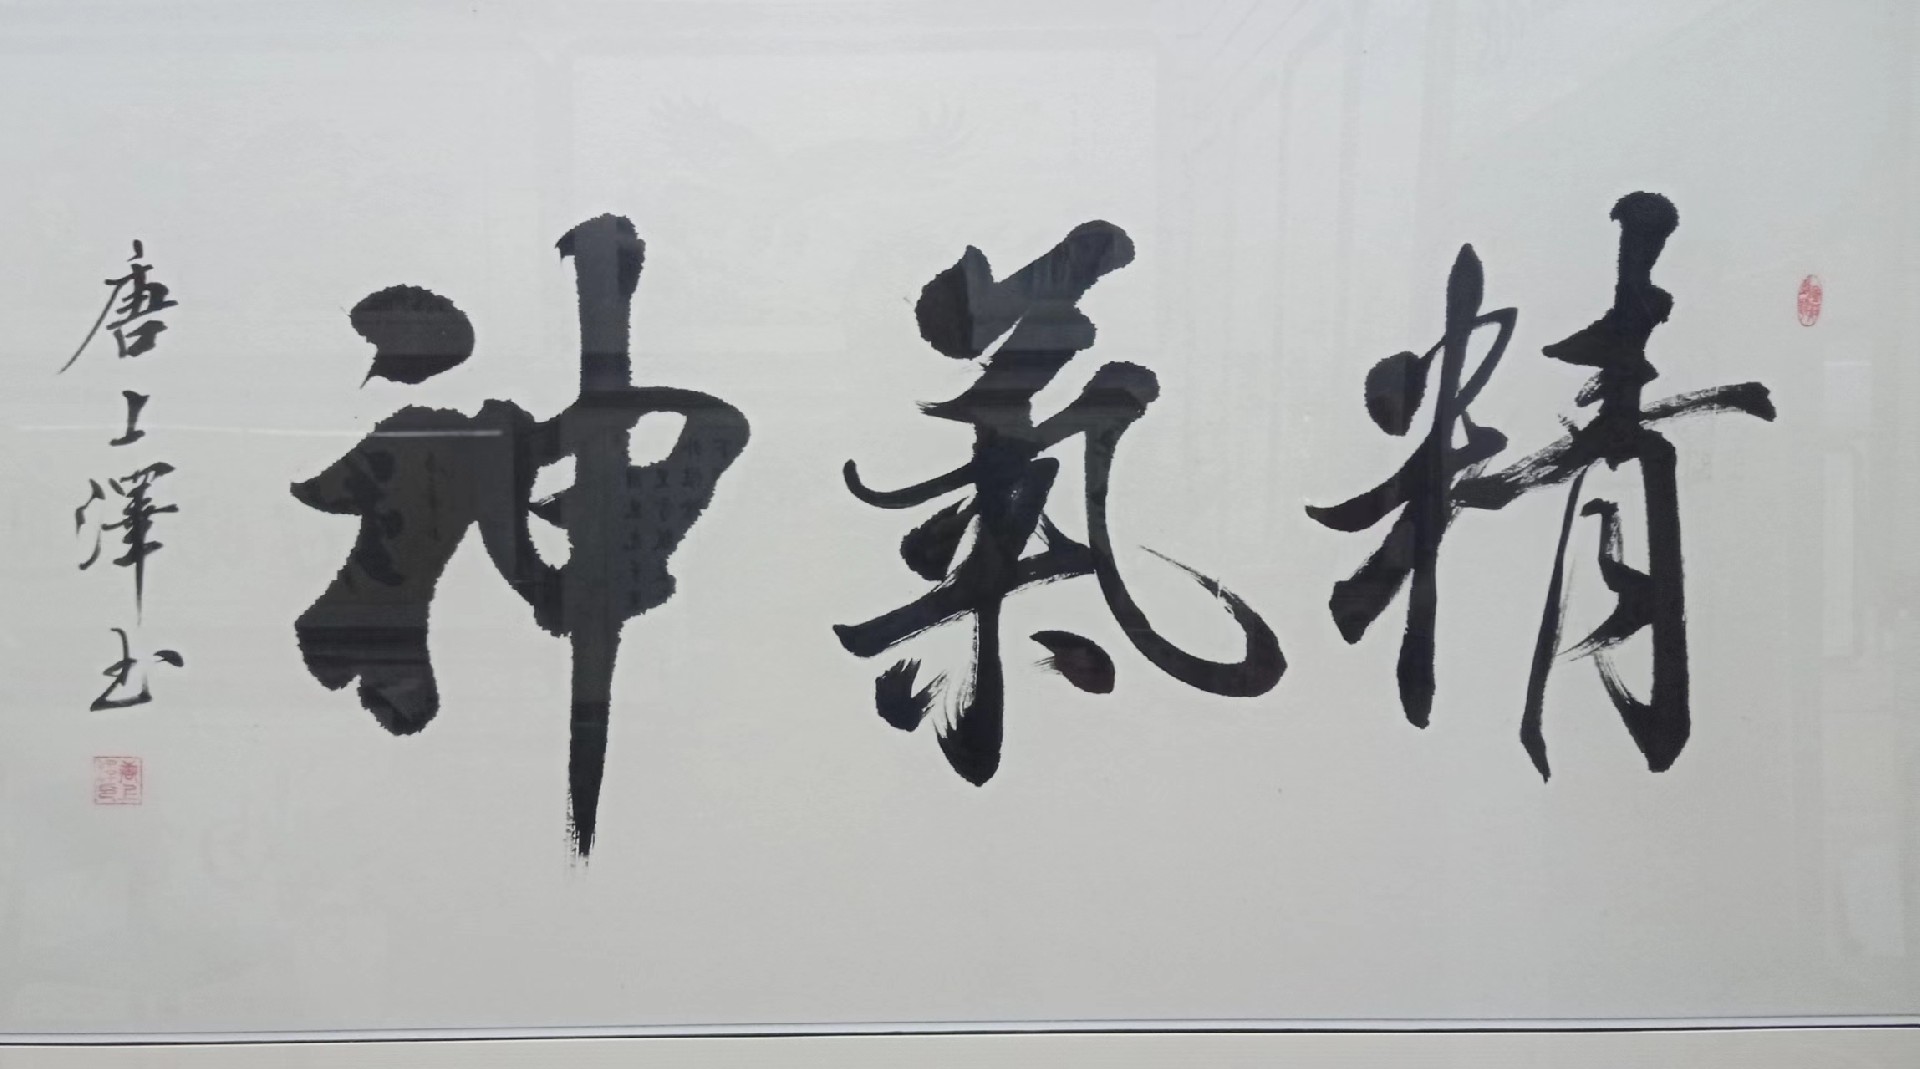 精氣神
唐上澤书